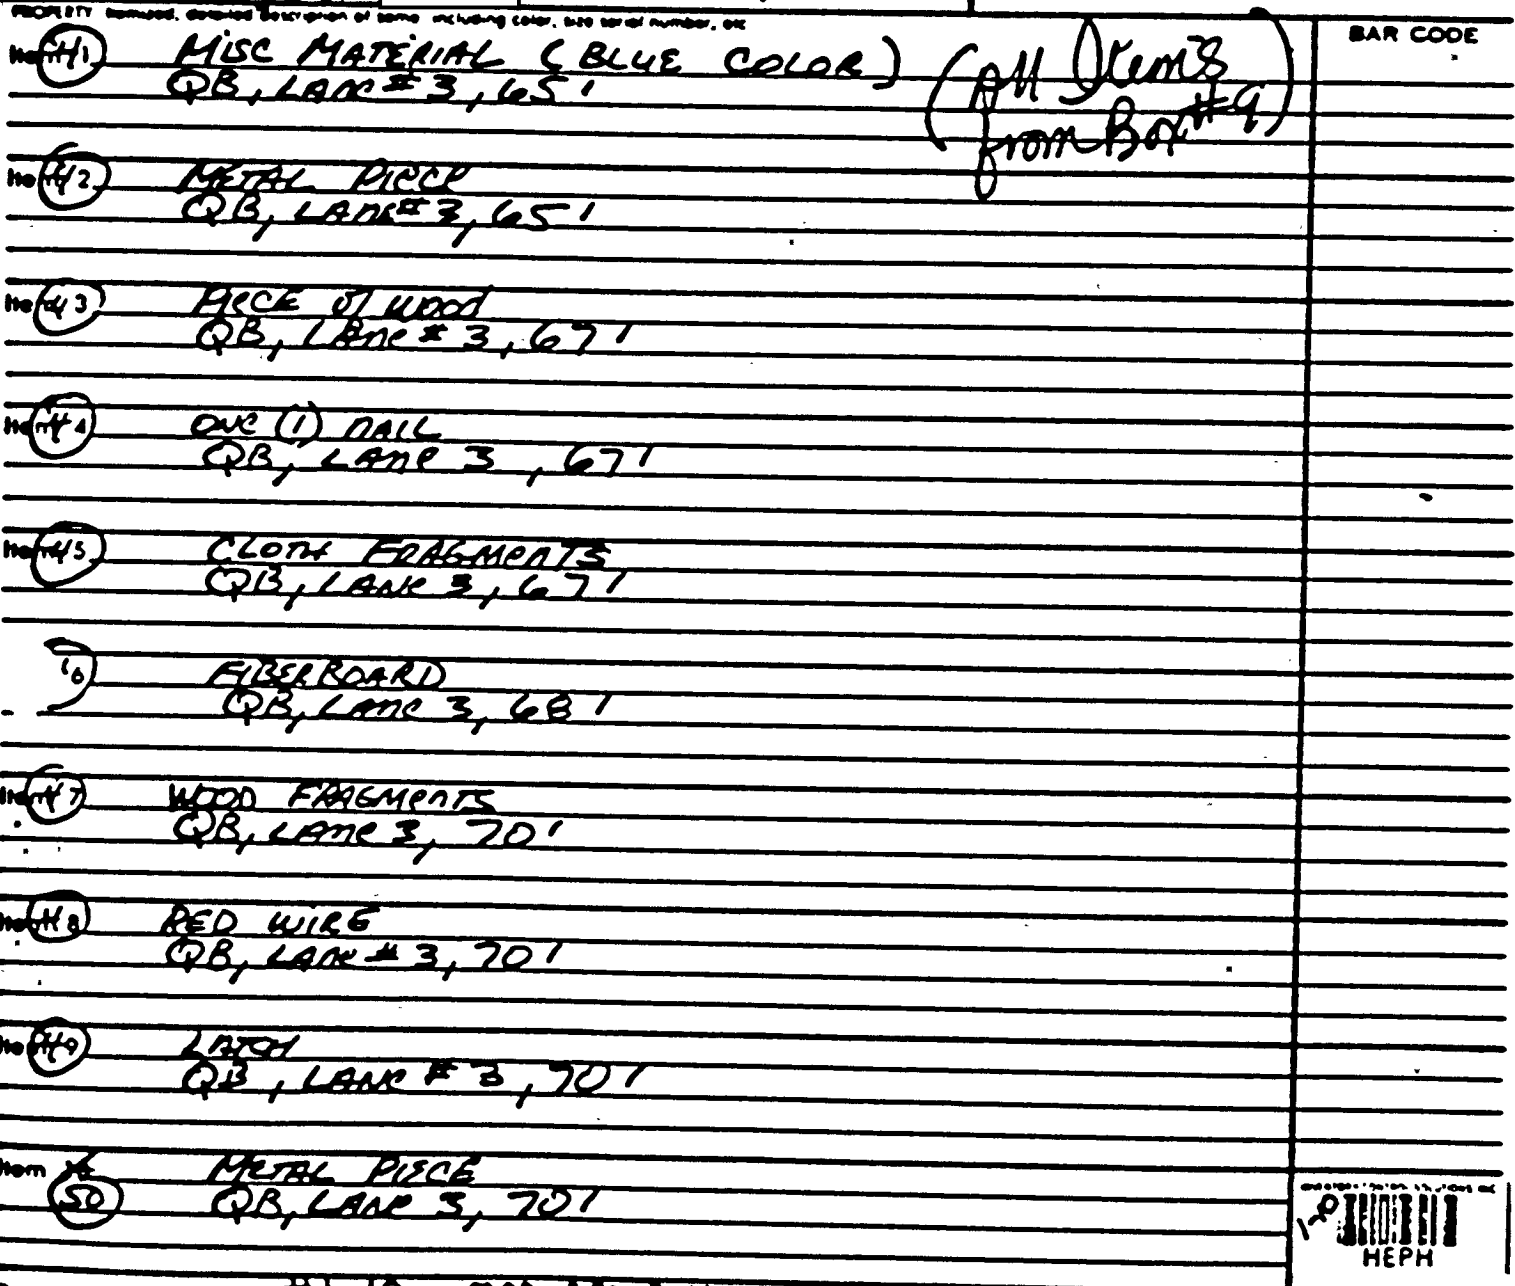 PROPERTY Itemized, detailed description of same including color, size serial number, etc
BAR CODE
Item 41 MISC MATERIAL (BLUE COLOR) (All Items
QB, LANE #3, 65' from Box #9)
Item 42 METAL PIECE
QB, LANE #3, 65'
Item 43 PIECE of WOOD
QB, LANE #3, 67'
Item 44 ONE (1) NAIL
QB, LANE 3, 67'
Item 45 CLOTH FRAGMENTS
QB, LANE 3, 67'
FIBERBOARD
QB, LANE 3, 68'
Item 47 WOOD FRAGMENTS
QB, LANE 3, 70'
Item 48 RED WIRE
QB, LANE #3, 70'
Item 49 LATCH
QB, LANE #3, 70'
Item METAL PIECE
50 QB, LANE 3, 70'
HEPH